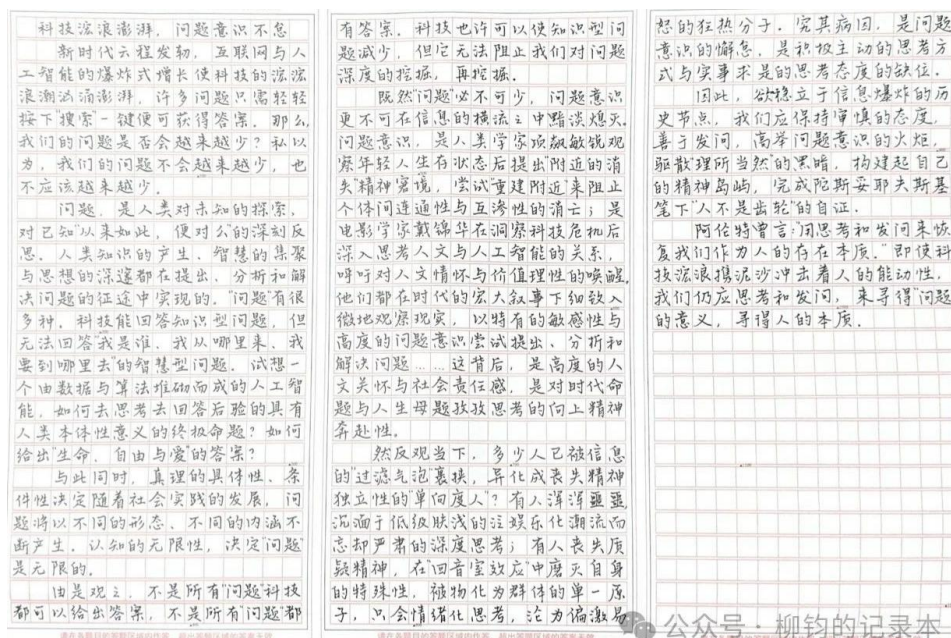 科技滚浪澎湃，问题意识不怠
新时代云程发轫，互联网与人
工智能的爆炸式增长使科技的滚滚
浪潮汹涌澎湃，许多问题只需轻轻
按下搜索一键便可获得答案。那么，
我们的问题是否会越来越少？私以
为，我们的问题不会越来越少，也
不应该越来越少。
问题，是人类对未知的探索，
对已知"从来如此，便对么"的深刻反
思。人类知识的产生、智慧的集聚
与思想的深邃都在提出、分析和解
决问题的征途中实现的。"问题"有很
多种，科技能回答知识型问题，但
无法回答"我是谁，我从哪里来，我
要到哪里去"的智慧型问题。试想一
个由数据与算法堆砌而成的人工智
能，如何去思考去回答后验的具有
人类本体性意义的终极命题？如何
给出"生命、自由与爱"的答案？
与此同时，真理的具体性、条
件性决定随着社会实践的发展，问
题将以不同的形态、不同的内涵不
断产生。认知的无限性，决定"问题"
是无限的。
由是观之，不是所有"问题"科技
都可以给出答案，不是所有"问题"都
有答案。科技也许可以使知识型问
题减少，但它无法阻止我们对问题
深度的挖掘，再挖掘。
既然"问题"必不可少，问题意识
更不可在信息的横流之中黯淡熄灭。
问题意识，是人类学家项飙敏锐观
察年轻人生存状态后提出"附近的消
失"精神窘境，尝试"重建附近"来阻止
个体间连通性与互渗性的消亡；是
电影学家戴锦华在洞察科技危机后
深入思考人文与人工智能的关系，
呼吁对人文情怀与价值理性的唤醒。
他们都在时代的宏大叙事下细致入
微地观察现实，以特有的敏感性与
高度的问题意识尝试提出、分析和
解决问题……这背后，是高度的人
文关怀与社会责任感，是对时代命
题与人生母题孜孜思考的向上精神
奔赴性。
然反观当下，多少人已被信息
的"过滤气泡"裹挟，异化成丧失精神
独立性的"单向度人"？有人浑浑噩噩，
沉湎于低级肤浅的泛娱乐化潮流而
忘却严肃的深度思考；有人丧失质
疑精神，在"回音室效应"中磨灭自身
的特殊性，被物化为群体的单一原
子，只会情绪化思考，沦为偏激易
怒的狂热分子。究其病因，是问题
意识的懈怠，是积极主动的思考方
式与实事求是的思考态度的缺位。
因此，欲稳立于信息爆炸的历
史节点，我们应保持审慎的态度，
善于发问，高举问题意识的火炬，
驱散"理所当然"的黑暗，构建起自己
的精神岛屿，完成陀斯妥耶夫斯基
笔下"人不是齿轮"的自证。
阿伦特曾言："用思考和发问来恢
复我们作为人的存在本质。"即使科
技滚浪携泥沙冲击着人的能动性，
我们仍应思考和发问，来寻得"问题"
的意义，寻得人的本质。
公众号·柳钧的记录本